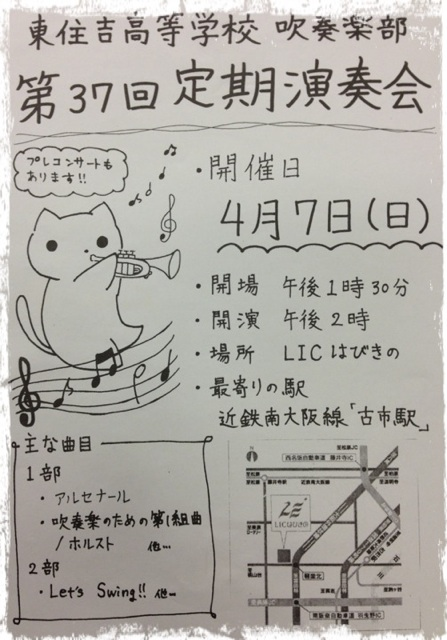 東住吉高等学校 吹奏楽部
第37回 定期演奏会
プレコンサートも
あります!!
・開催日
4月7日(日)
・開場 午後1時30分
・開演 午後2時
・場所 LICはびきの
・最寄りの駅
近鉄南大阪線「古市駅」
主な曲目
1部
・アルセナール
・吹奏楽のための第1組曲
/ホルスト 他…
2部
・Let's Swing!! 他…
LICはびきの